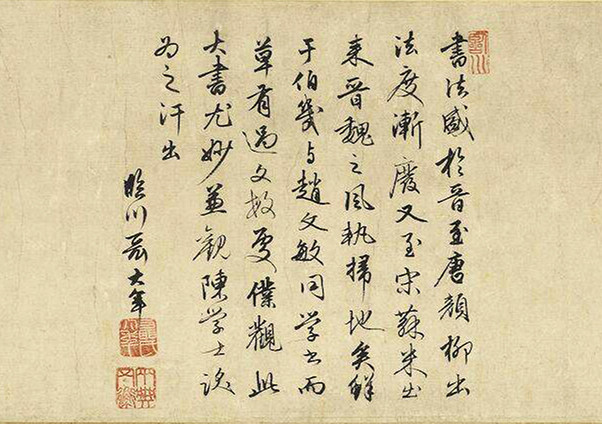 書法盛於晉至唐顏柳出
法度漸廢又至宋蘇米出
來晉魏之風執掃地矣鮮
于伯幾与趙文敏同学书而
草有過文敏處僕觀此
大書尤妙並觀陳学士
為之汗出
臨川聶大年